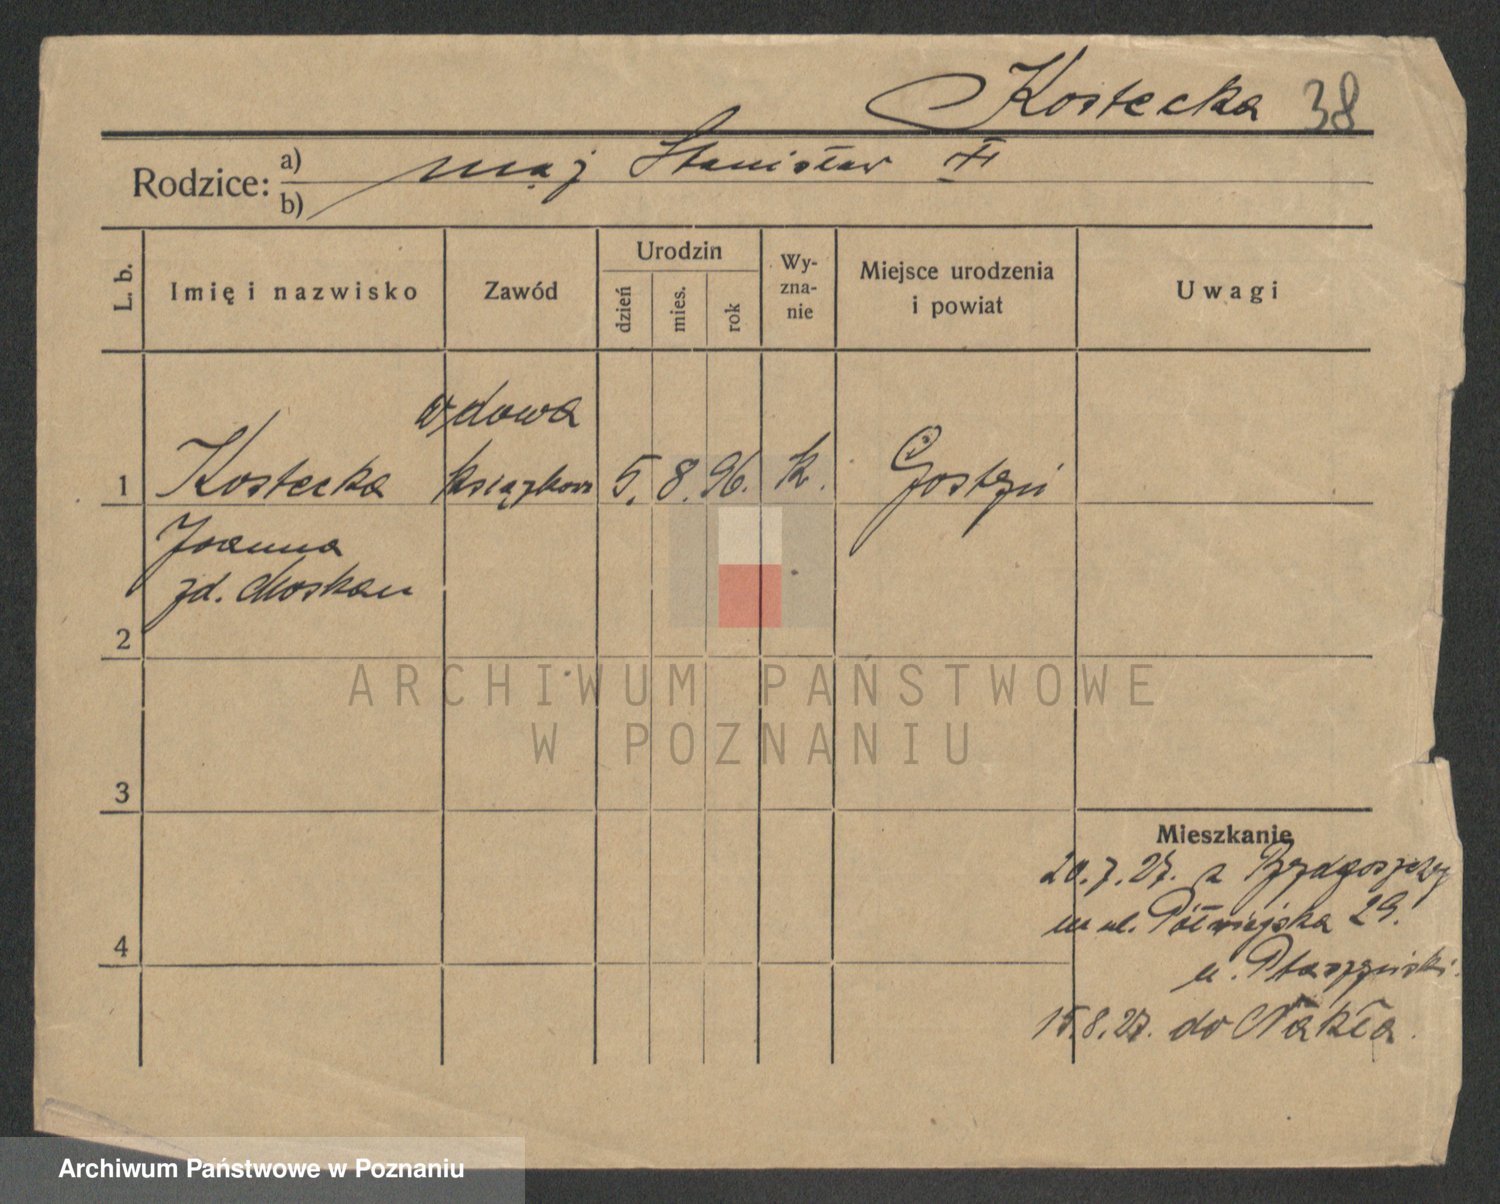 Kostecka 38
Rodzice: a) mąż Stanisław
b)
L. b. Imię i nazwisko Zawód Urodzin dzień mies. rok Wy-zna-nie Miejsce urodzenia i powiat Uwagi
wdowa
1 Kostecka książkow 5. 8. 96. k. Gostyń
Joanna
zd. Moskau
2
3
4
Mieszkanie
20.7.27. z Bydgoszczy
na ul. Półwiejska 29.
u. Ptaszyński.
15.8.27. do Nakła.
ARCHIWUM PAŃSTWOWE
W POZNANIU
Archiwum Państwowe w Poznaniu